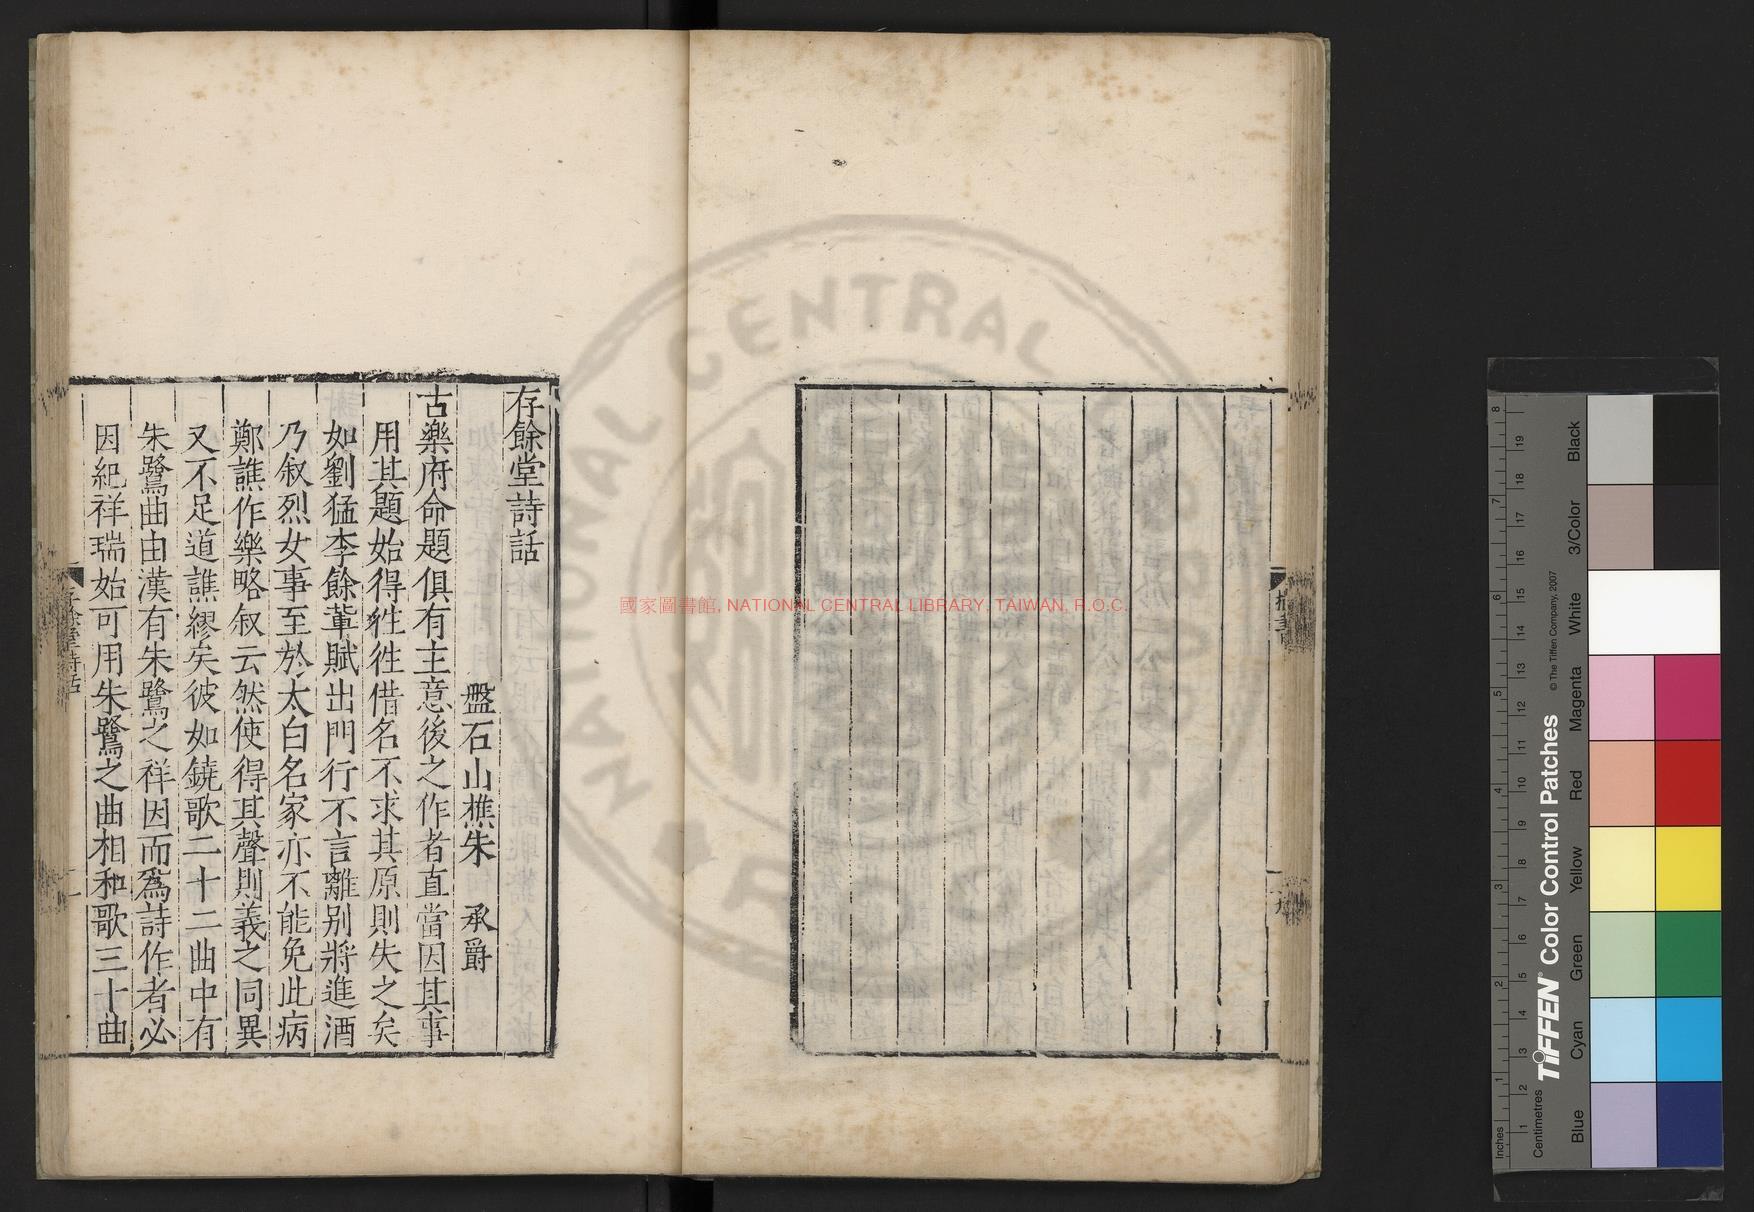 存餘堂詩話
盤石山樵朱 承爵
古樂府命題俱有主意後之作者直當因其事
用其題始得徃徃借名不求其原則失之矣
如劉猛李餘軰賦出門行不言離别將進酒
乃叙烈女事至於太白名家亦不能免此病
鄭譙作樂略叙云然使得其聲則義之同異
又不足道譙繆矣彼如鐃歌二十二曲中有
朱鷺曲由漢有朱鷺之祥因而為詩作者必
因紀祥瑞始可用朱鷺之曲相和歌三十曲
存餘堂詩話
一
國家圖書館, NATIONAL CENTRAL LIBRARY, TAIWAN, R.O.C.
NATIONAL CENTRAL
TIFFEN® Color Control Patches
© The Tiffen Company, 2007
Inches
Centimetres
Blue
Cyan
Green
Yellow
Red
Magenta
White
3/Color
Black